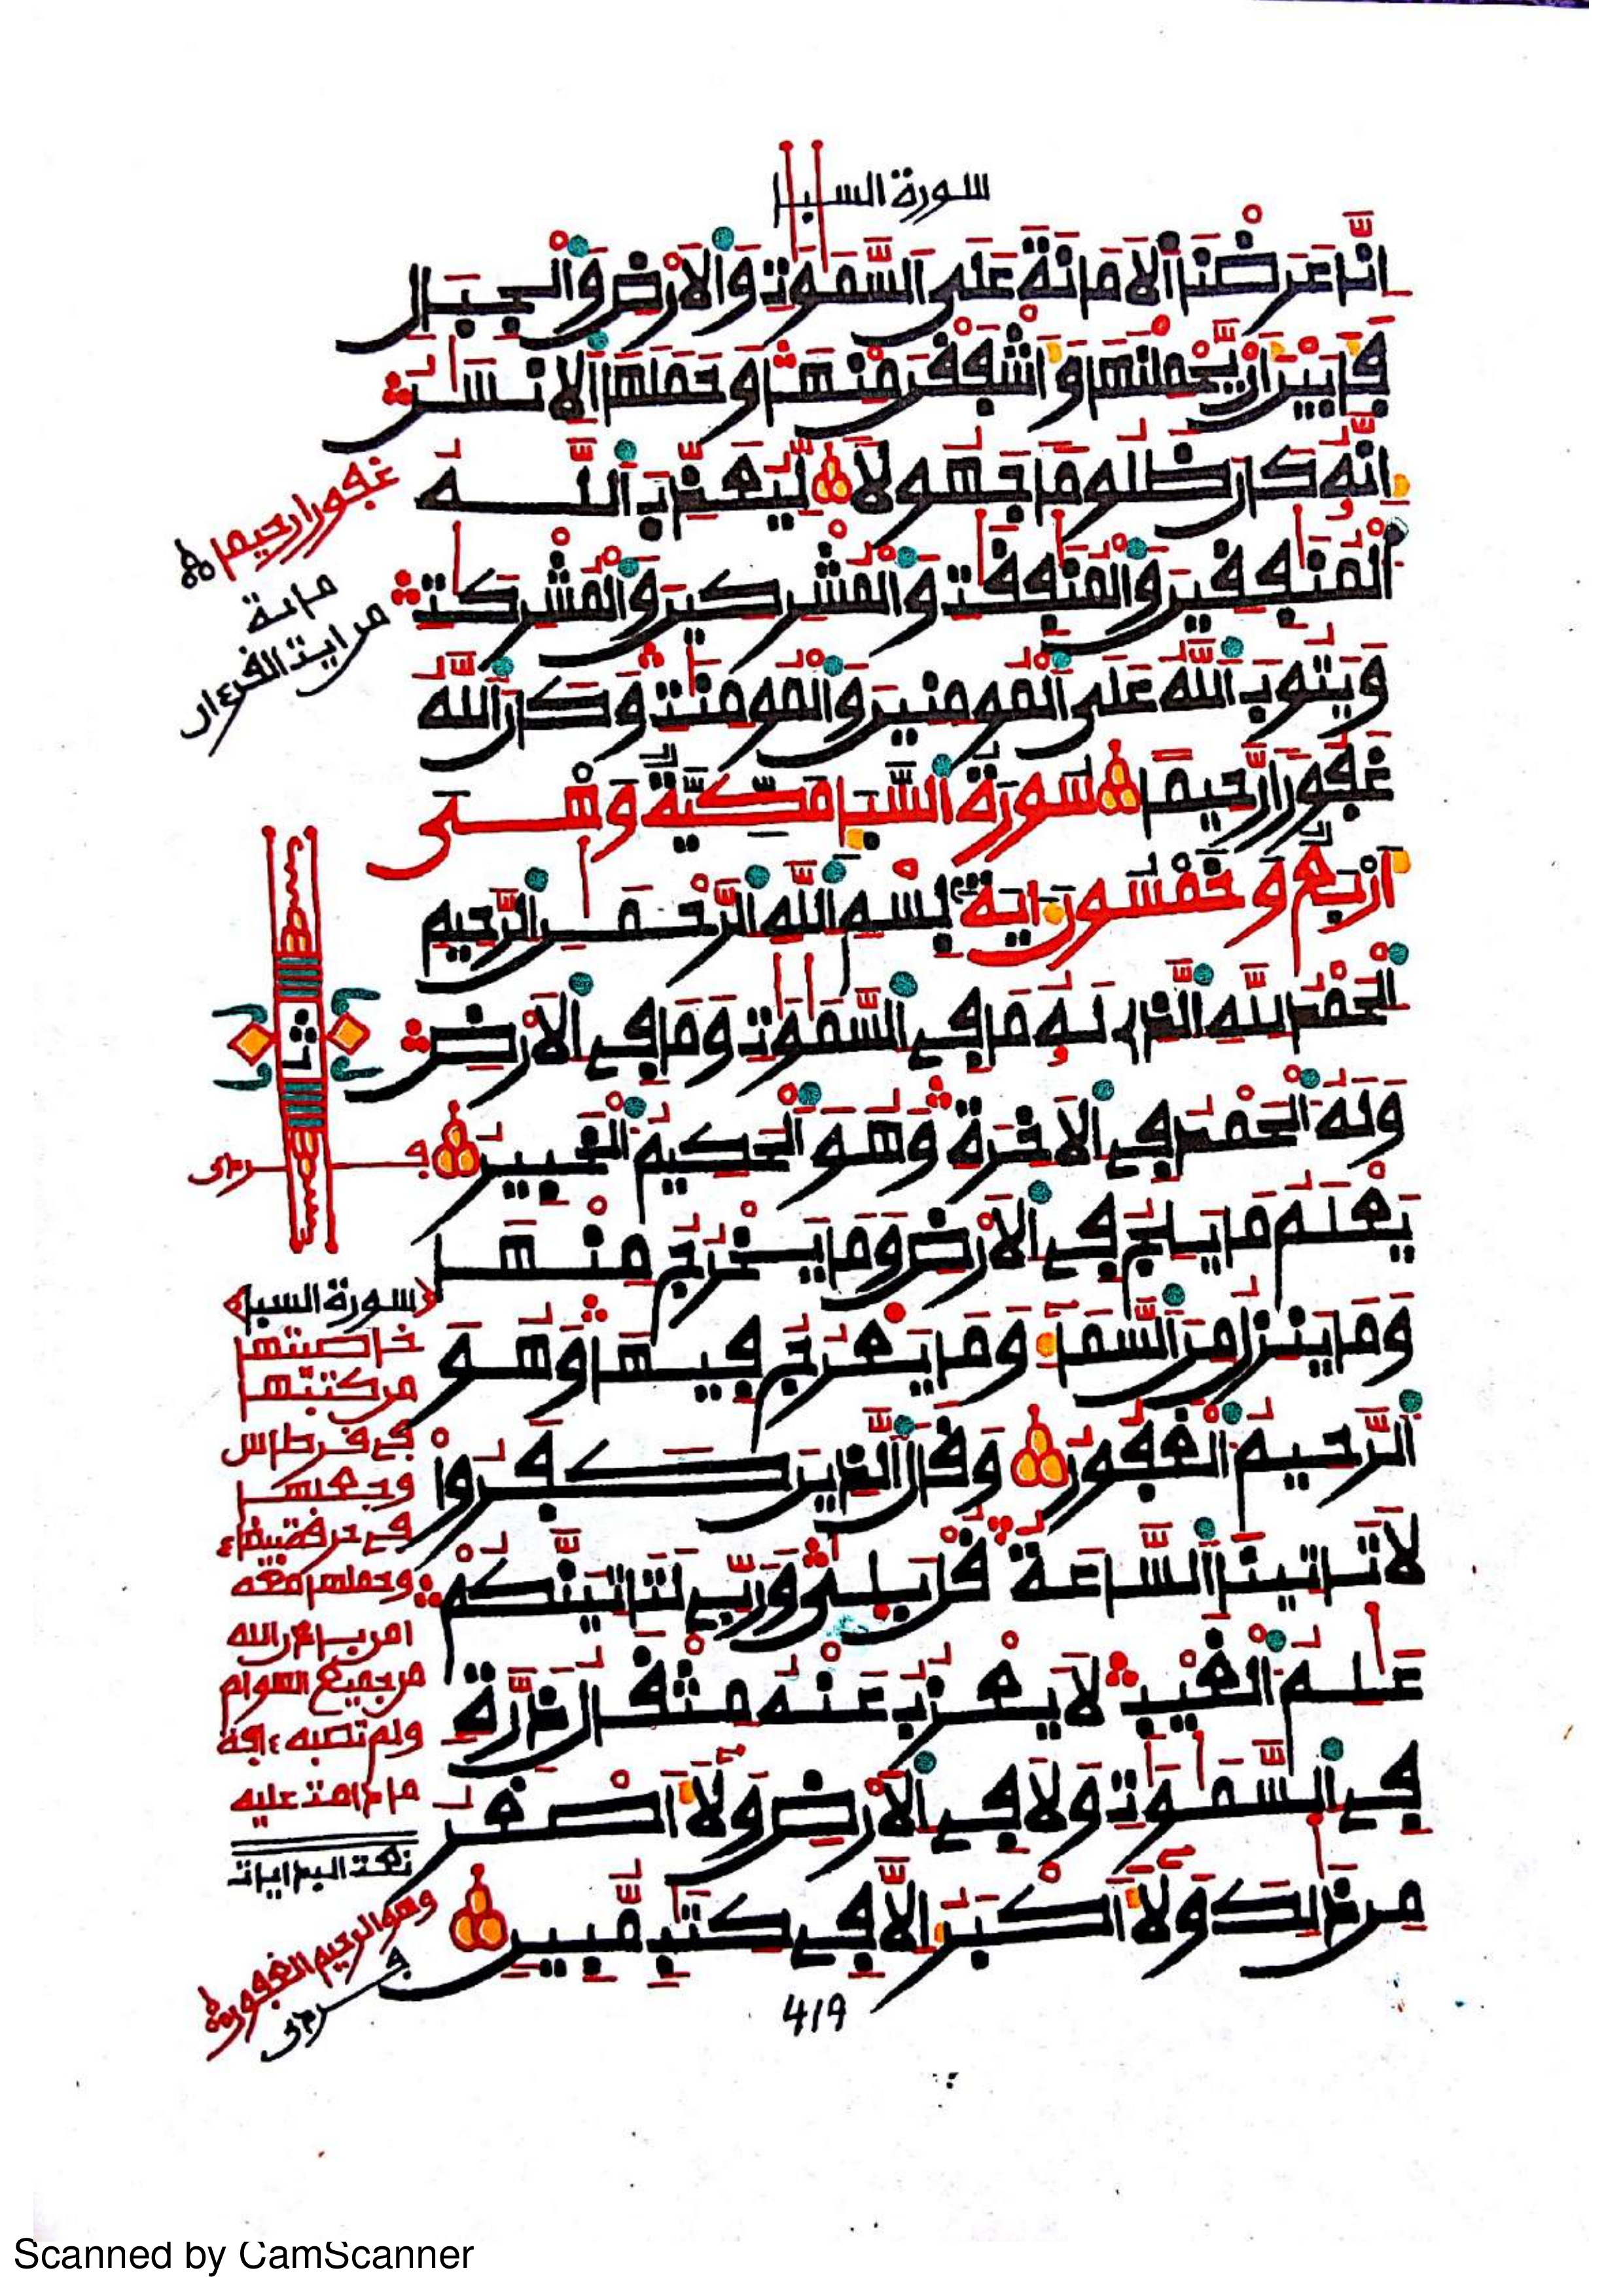 سورة السبا
إِنَّا عَرَضْنَا اَلَامَانَةَ عَلَى اَلسَّمَٰوَٰتِ وَالَارْضِ وَالْجِبَالِ
فَأَبَيْنَ أَنْ يَّحْمِلْنَهَا وَأَشْفَقْنَ مِنْهَا وَحَمَلَهَا اَلِانسَٰنُ
إِنَّهُ كَانَ ظَلُوماً جَهُولاً لِّيُعَذِّبَ اَللَّهُ
اَلْمُنَٰفِقِينَ وَالْمُنَٰفِقَٰتِ وَالْمُشْرِكِينَ وَالْمُشْرِكَٰتِ
وَيَتُوبَ اَللَّهُ عَلَى اَلْمُومِنِينَ وَالْمُومِنَٰتِ وَكَانَ اَللَّهُ
غَفُوراً رَّحِيماً سُورَةُ السَّبَإِ مَكِّيَّةٌ وَهْىَ
أَرْبَعٌ وَخَمْسُونَ ءَايَةً بِسْمِ اِللَّهِ اِلرَّحْمَٰنِ اِلرَّحِيمِ
اِلْحَمْدُ لِلَّهِ اِلذِى لَهُ مَا فِى اِلسَّمَٰوَٰتِ وَمَا فِى اِلَارْضِ
وَلَهُ اُلْحَمْدُ فِى اِلَاخِرَةِ وَهُوَ اَلْحَكِيمُ اُلْخَبِيرُ
يَعْلَمُ مَا يَلِجُ فِى اِلَارْضِ وَمَا يَخْرُجُ مِنْهَا
وَمَا يَنزِلُ مِنَ اَلسَّمَاءِ وَمَا يَعْرُجُ فِيهَا وَهُوَ
اَلرَّحِيمُ اُلْغَفُورُ وَقَالَ اَلذِينَ كَفَرُوا
لَا تَاتِينَا اَلسَّاعَةُ قُلْ بَلَىٰ وَرَبِّى لَتَاتِيَنَّكُمْ
عَٰلِمُ اُلْغَيْبِ لَا يَعْزُبُ عَنْهُ مِثْقَالُ ذَرَّةٍ
فِى اِلسَّمَٰوَٰتِ وَلَا فِى اِلَارْضِ وَلَا أَصْغَرُ
مِن ذَٰلِكَ وَلَا أَكْبَرُ إِلَّا فِى كِتَٰبٍ مُّبِينٍ
غفورا رحيما
من ايت القرءان
ثمن
سورة السبإ
خاصيتها
من كتبها
فى قرطاس
وجعلها
وحملها معه
امن باذن الله
من جميع الهوام
ولم تصبه ءافة
ما دامت عليه
وهو الرحيم الغفور
419
Scanned by CamScanner